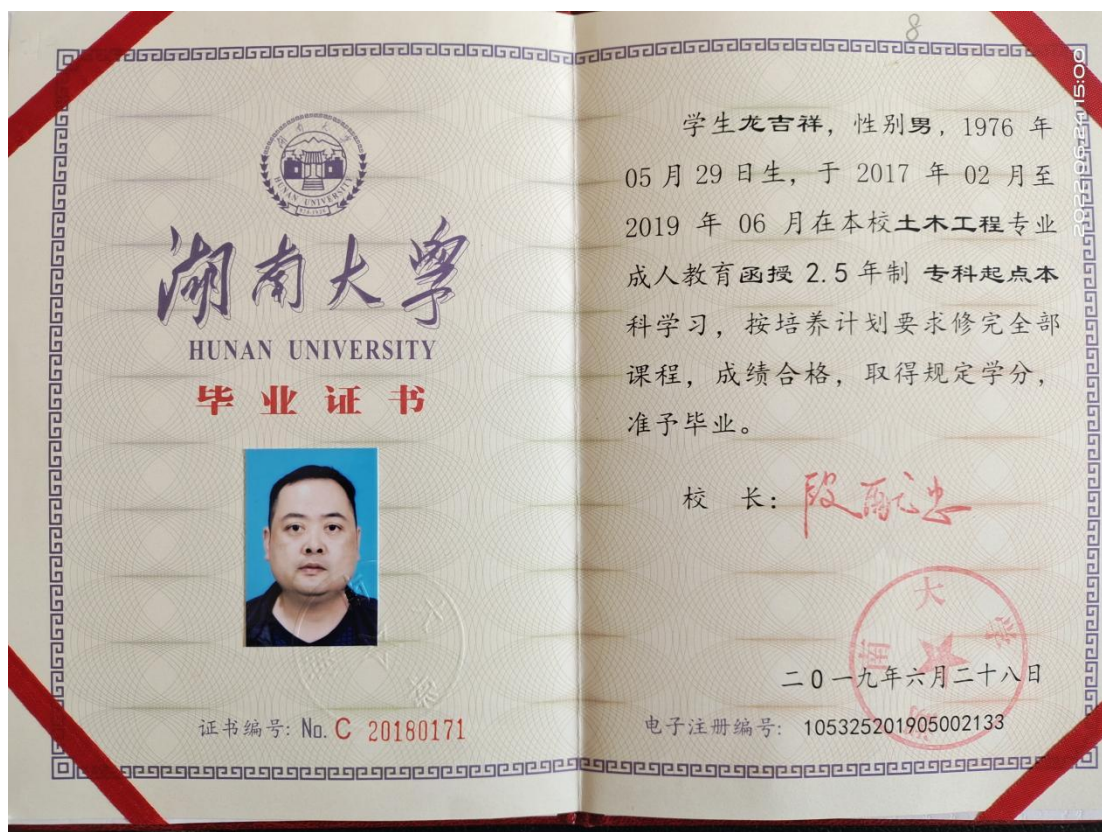 8
湖南大学
HUNAN UNIVERSITY
湖南大学
HUNAN UNIVERSITY
毕业证书
证书编号: No. C 20180171
学生龙吉祥，性别男，1976 年
05 月 29 日生，于 2017 年 02 月至
2019 年 06 月在本校土木工程专业
成人教育函授 2.5 年制 专科起点本
科学习，按培养计划要求修完全部
课程，成绩合格，取得规定学分，
准予毕业。
校 长：
湖南大学
二0一九年六月二十八日
电子注册编号: 105325201905002133